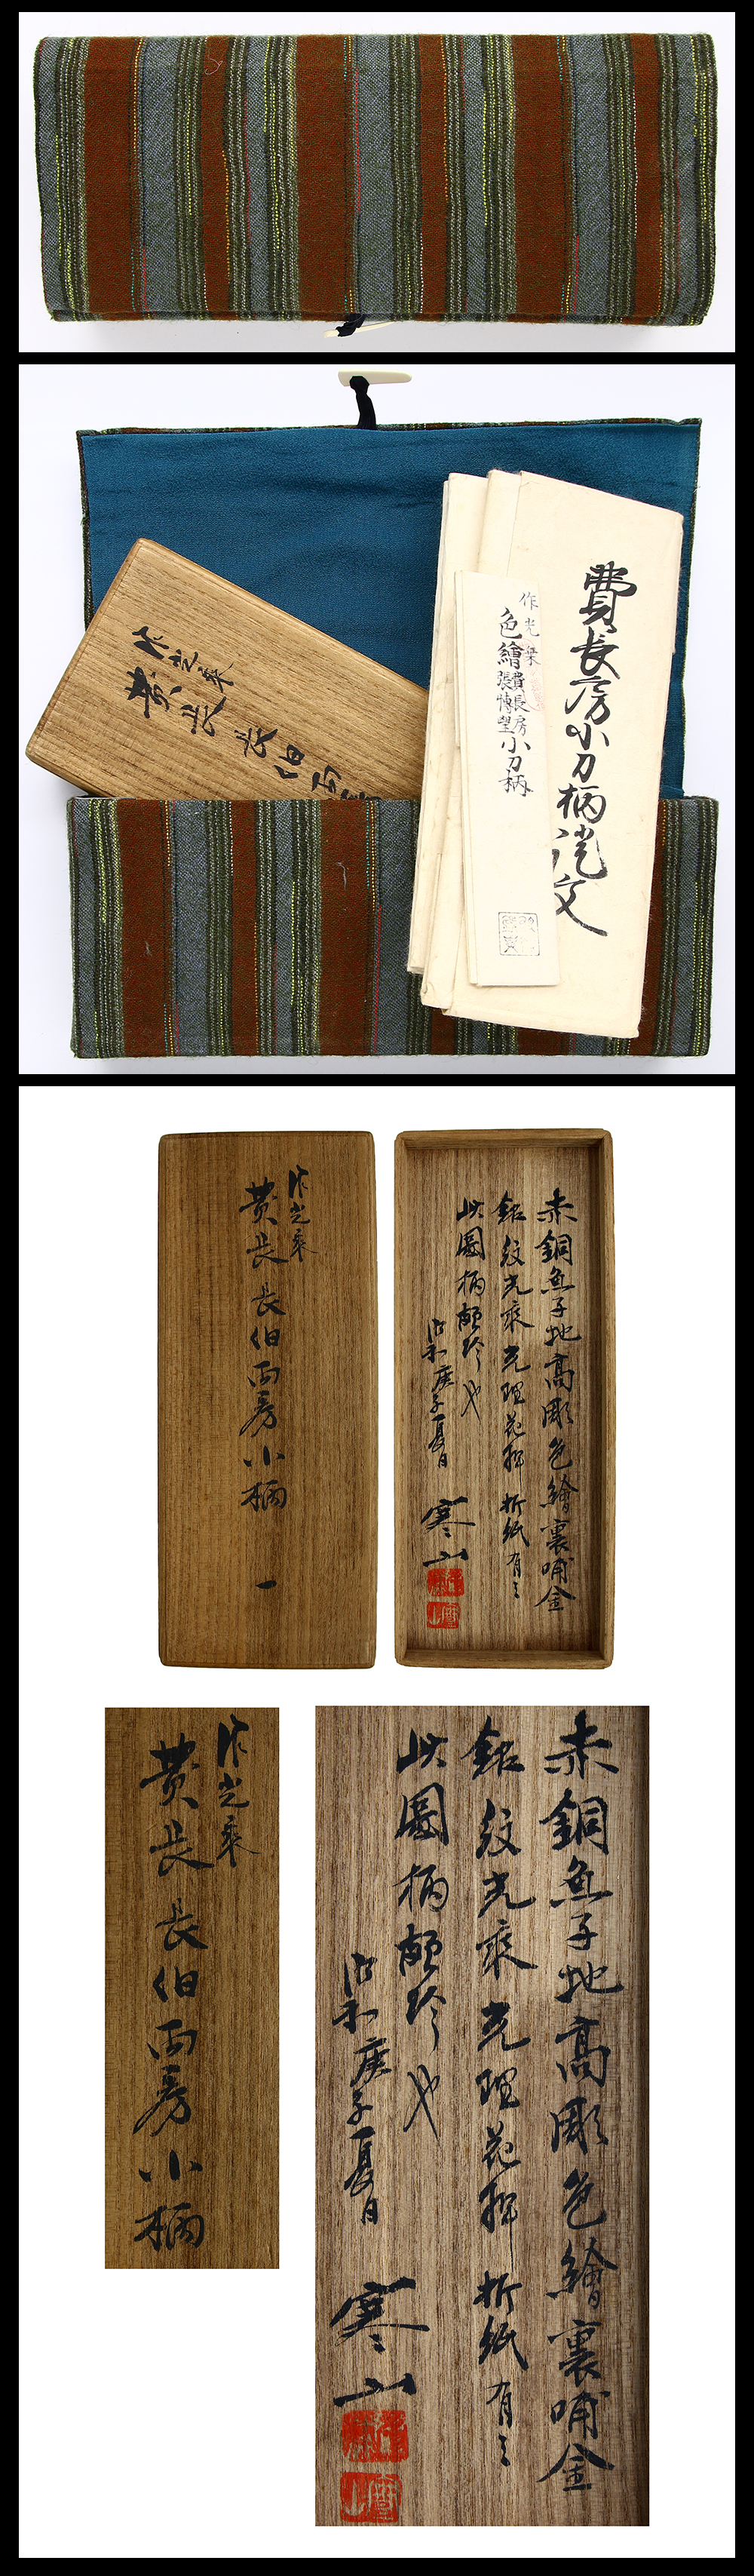 費長房小刀柄證文
作光乗
色繪
費長房
張博望
小刀柄
作光乗
黄長
長伯
両房小柄
一
赤銅魚子地高彫色繪裏哺金
銘紋光乗光理花押 折紙有之
此圖柄頗珍也
昭和庚子夏日
寒山
作光乗
黄長
長伯
両房小柄
赤銅魚子地高彫色繪裏哺金
銘紋光乗光理花押 折紙有之
此圖柄頗珍也
昭和庚子夏日
寒山